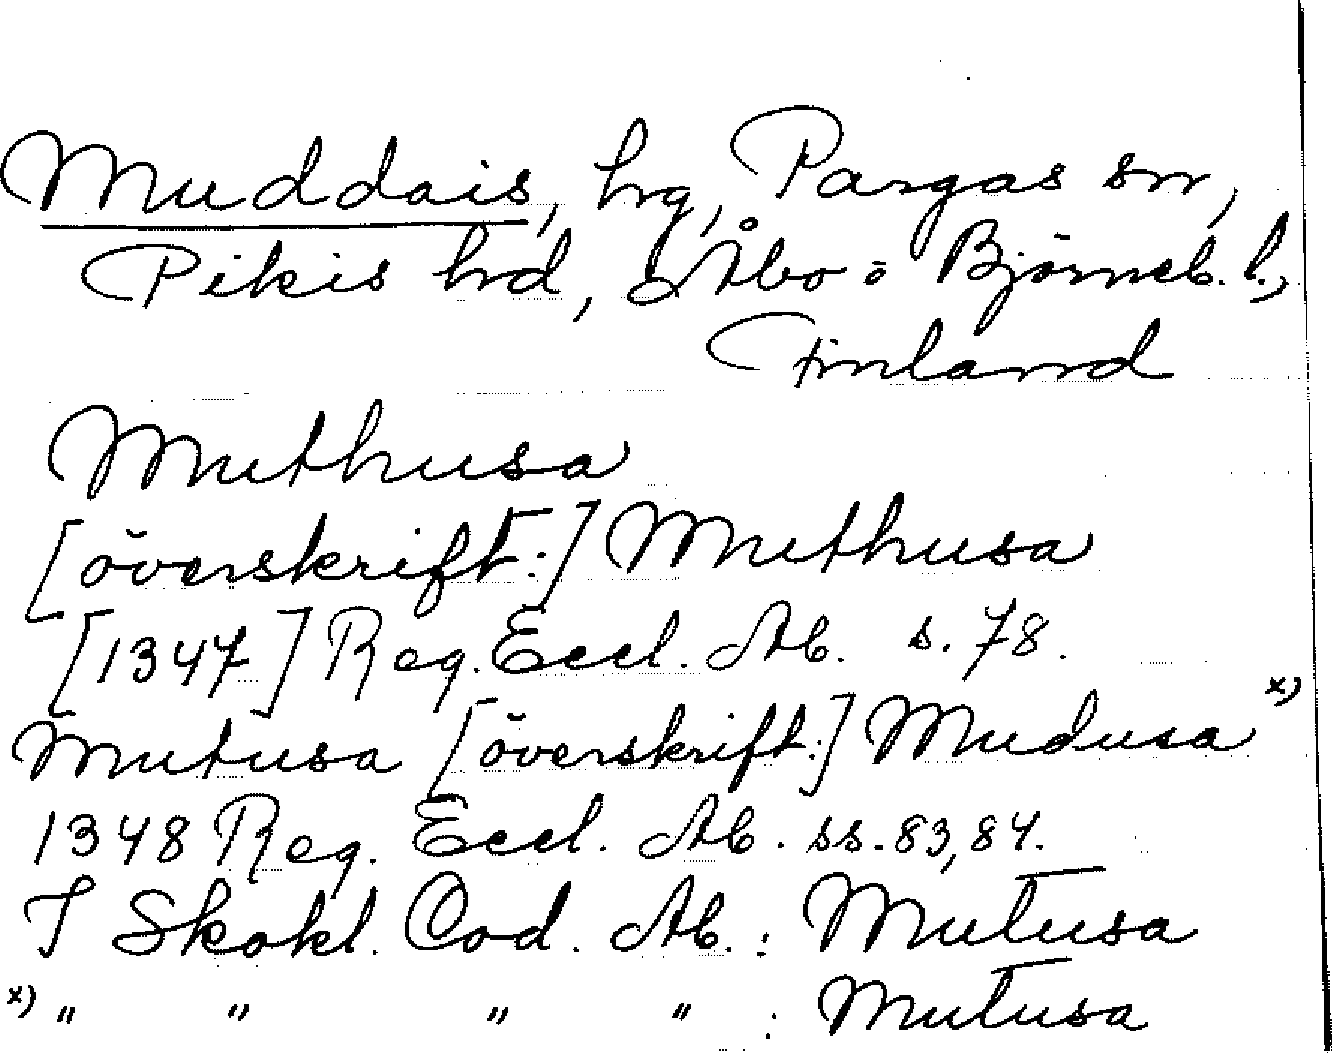 Muddais, hrg, Pargas sn,
Pikis hrd, Åbo o Björneb. l.,
Finland
Muthusa
[överskrift:] Muthusa
[1347] Reg. Eccl. Ab. s. 78.
Mutusa [överskrift:] Mudusa x)
1348 Reg. Eccl. Ab. ss. 83, 84.
I Skokl. Cod. Ab. : Mutusa
x) " " " " : Mutusa